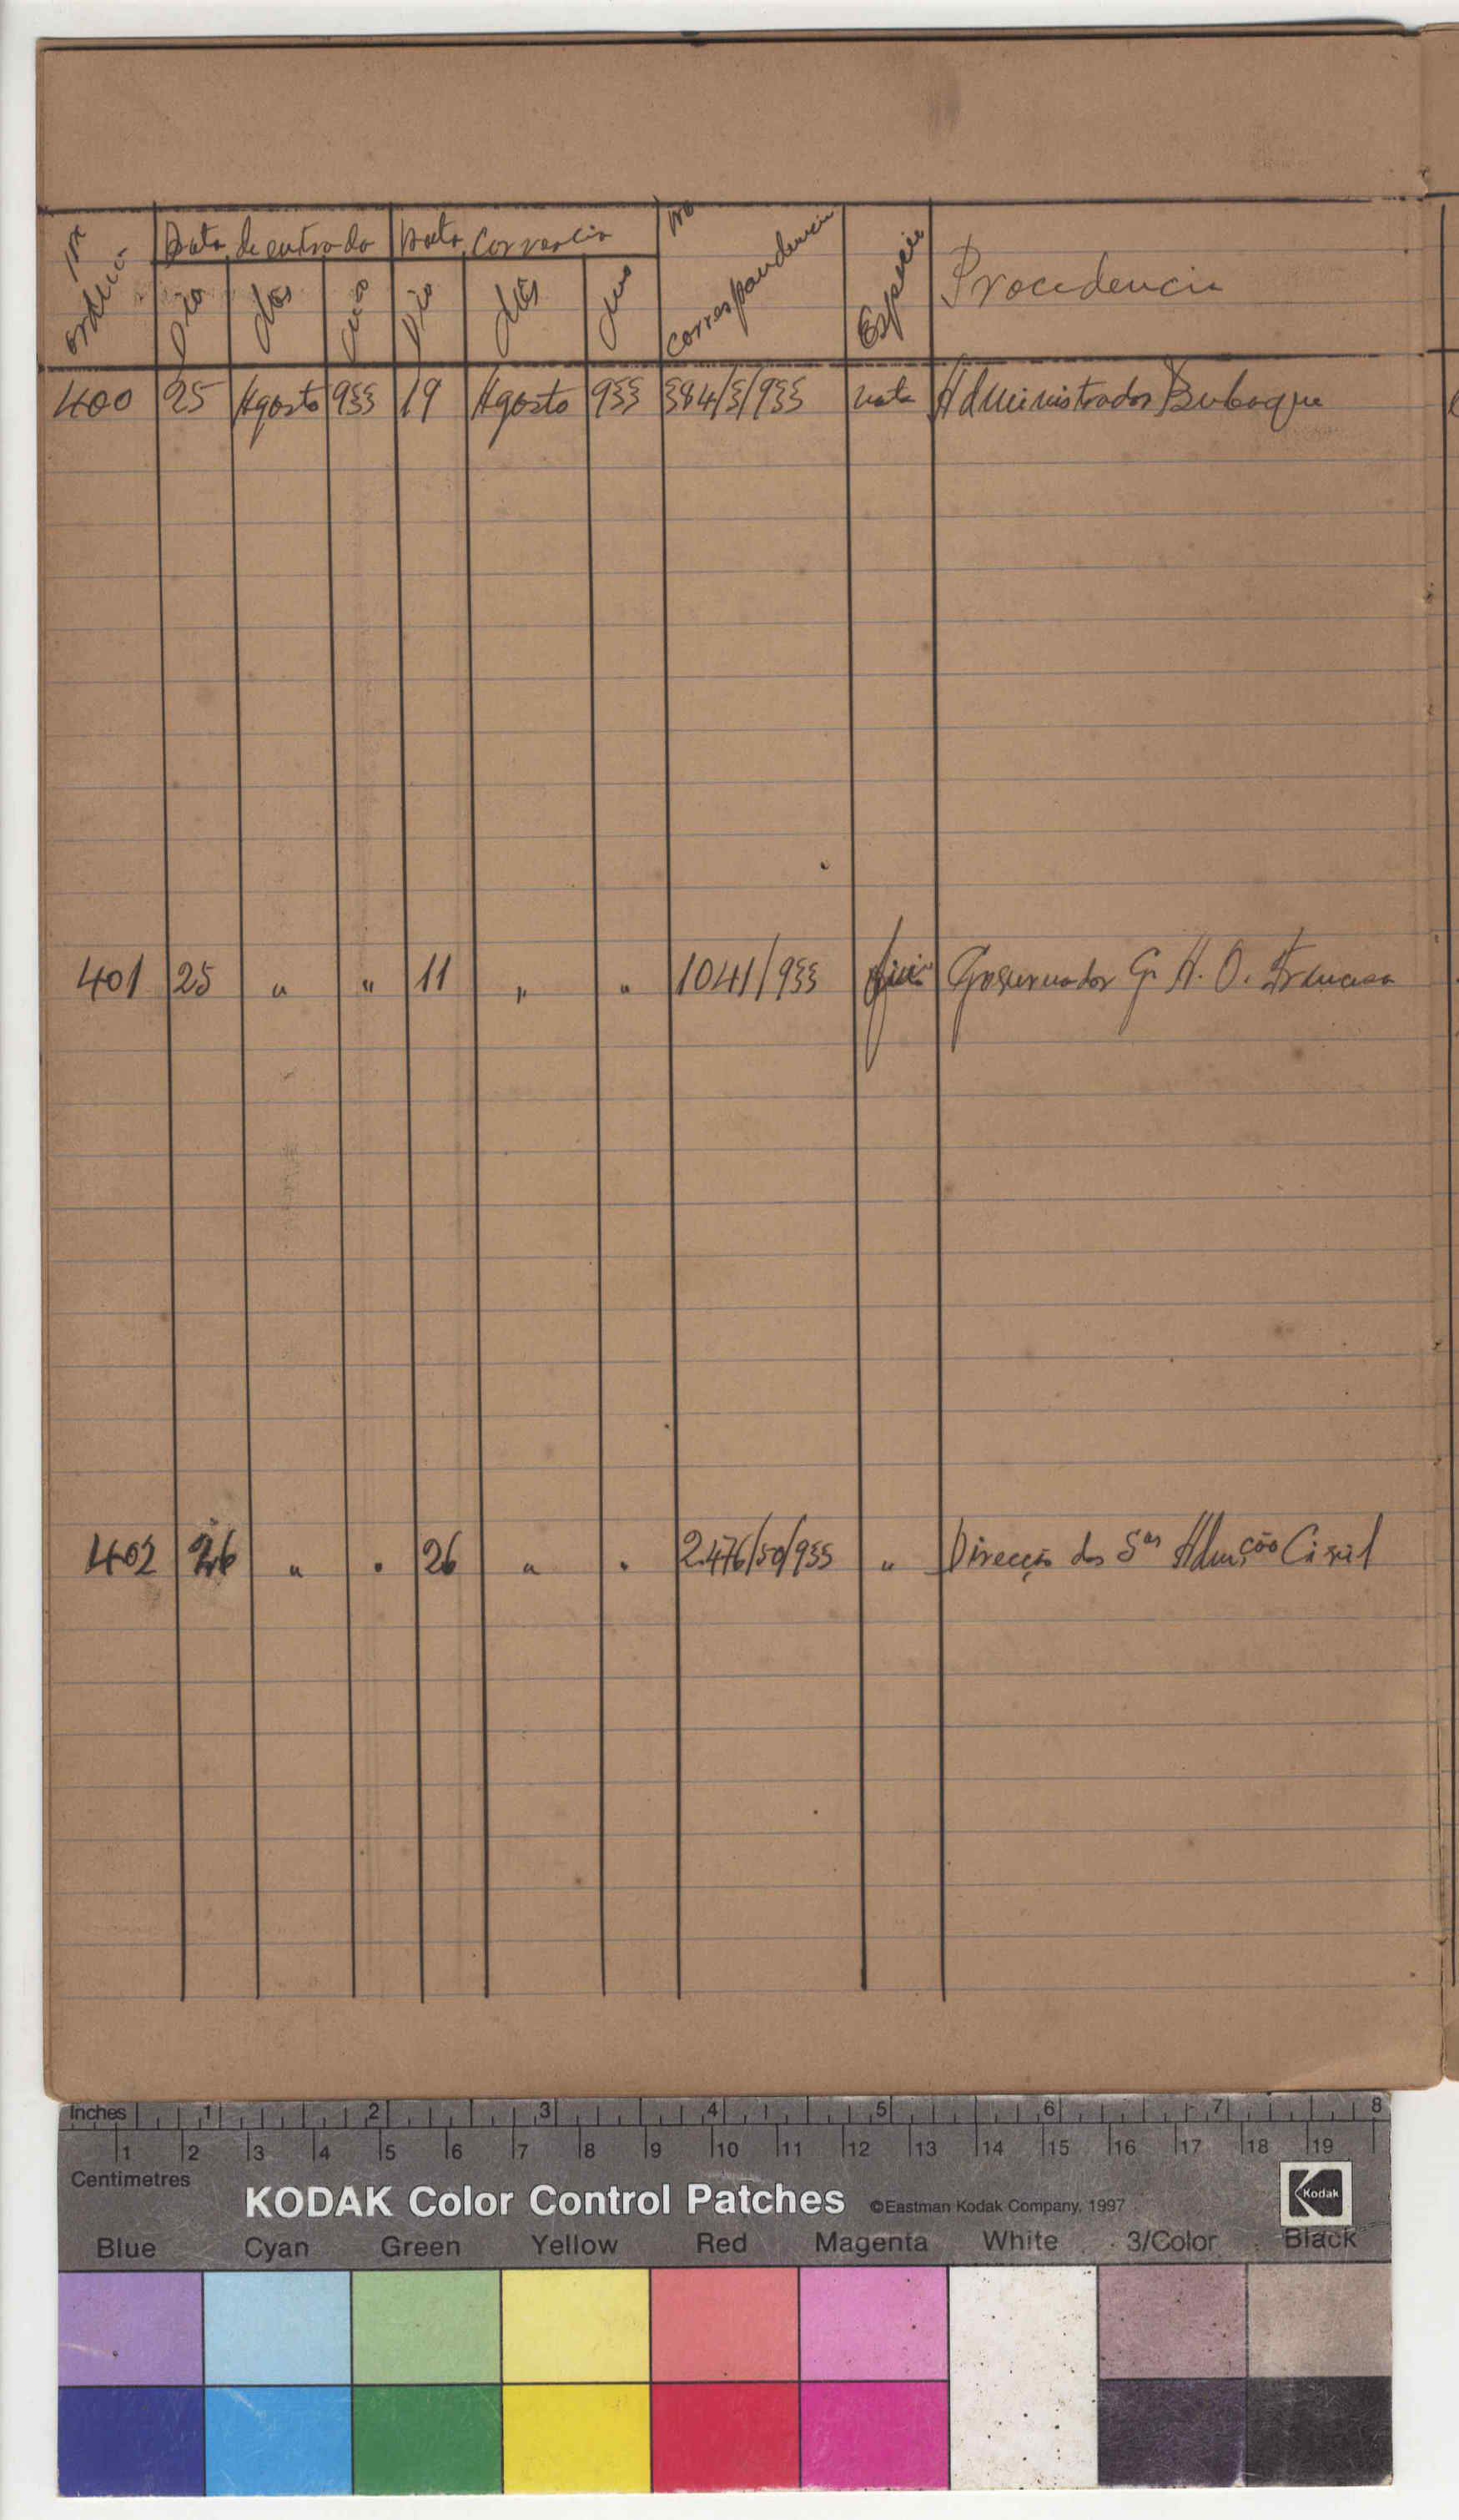 Nº ordem Data de entrada Data Correncia Nº correspondencia Especie Procedencia
Dia Mês Ano Dia Mês Ano
400 25 Agosto 933 19 Agosto 933 384/3/933 nota Administrador Bubaque
401 25 " " 11 " " 1041/933 Governador G. A. O. Francesa
402 26 " " 26 " " 2.476/50/933 " Direcção dos Sºs Admção Civil
Inches 1 2 3 4 5 6 7 8
1 2 3 4 5 6 7 8 9 10 11 12 13 14 15 16 17 18 19
Centimetres
KODAK Color Control Patches ©Eastman Kodak Company, 1997 Kodak
Blue Cyan Green Yellow Red Magenta White 3/Color Black